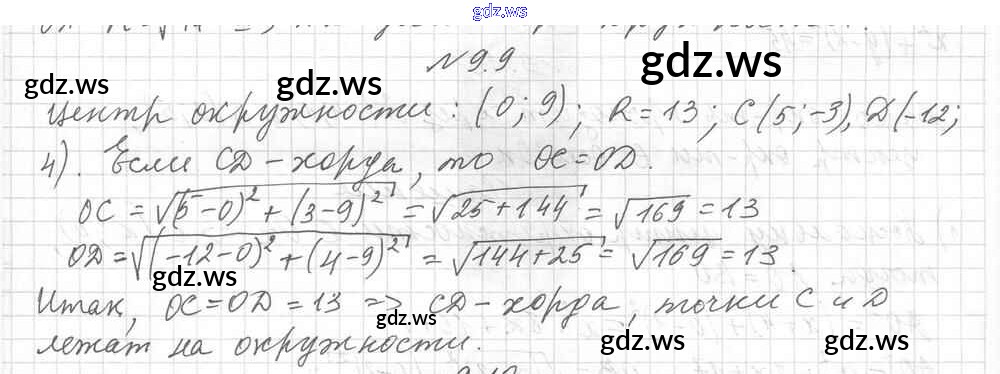 gdz.ws
N 9.9
gdz.ws gdz.ws gdz.ws
Центр окружности: (0; 9); R = 13; C(5; -3), D(-12;
4). Если CD - хорда, то OC = OD.
OC = √(5-0)² + (3-9)² = √25+144 = √169 = 13
OD = √(-12-0)² + (4-9)² = √144+25 = √169 = 13.
gdz.ws
Итак, OC = OD = 13 => CD - хорда, точки C и D
gdz.ws
лежат на окружности.
gdz.ws gdz.ws